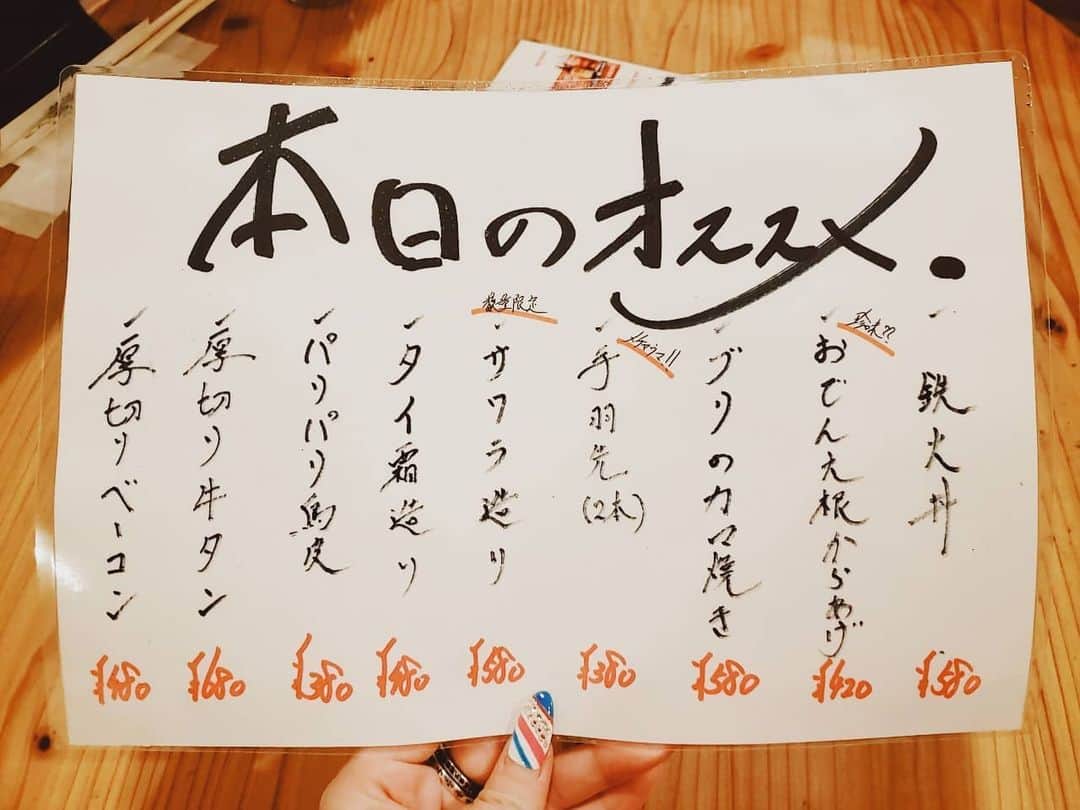 本日のオススメ.
鉄火丼
¥580
珍味??
おでん大根からあげ
¥420
ブリのカマ焼き
¥580
メチャウマ!!
手羽先(2本)
¥380
数量限定
サワラ造り
¥580
タイ霜造り
¥480
パリパリ鳥皮
¥380
厚切り牛タン
¥680
厚切りベーコン
¥480